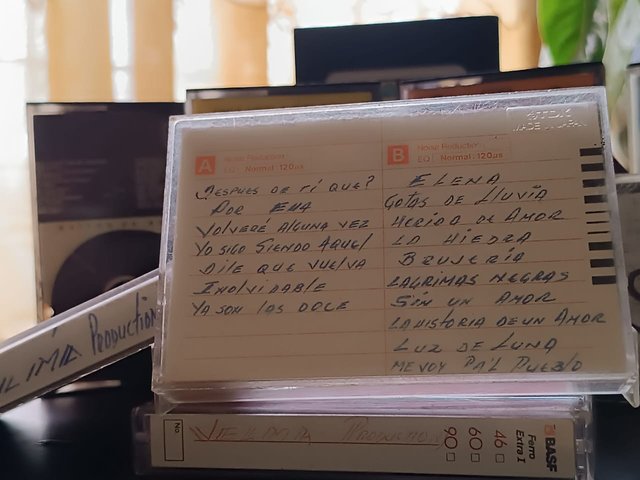 TDK
MADE IN JAPAN
A Noise Reduction
EQ Normal: 120µs
DESPUES DE TI QUE?
POR ELLA
VOLVERE ALGUNA VEZ
YO SIGO SIENDO AQUEL
DILE QUE VUELVA
INOLVIDABLE
YA SON LAS DOCE
B Noise Reduction
EQ Normal: 120µs
ELENA
GOTAS DE LLUVIA
HERIDA DE AMOR
LA HIEDRA
BRUJERIA
LAGRIMAS NEGRAS
SIN UN AMOR
LA HISTORIA DE UN AMOR
LUZ DE LUNA
ME VOY PA'L PUEBLO
Production
No.
Production
90
60
46
Ferro
Extra I
BASF